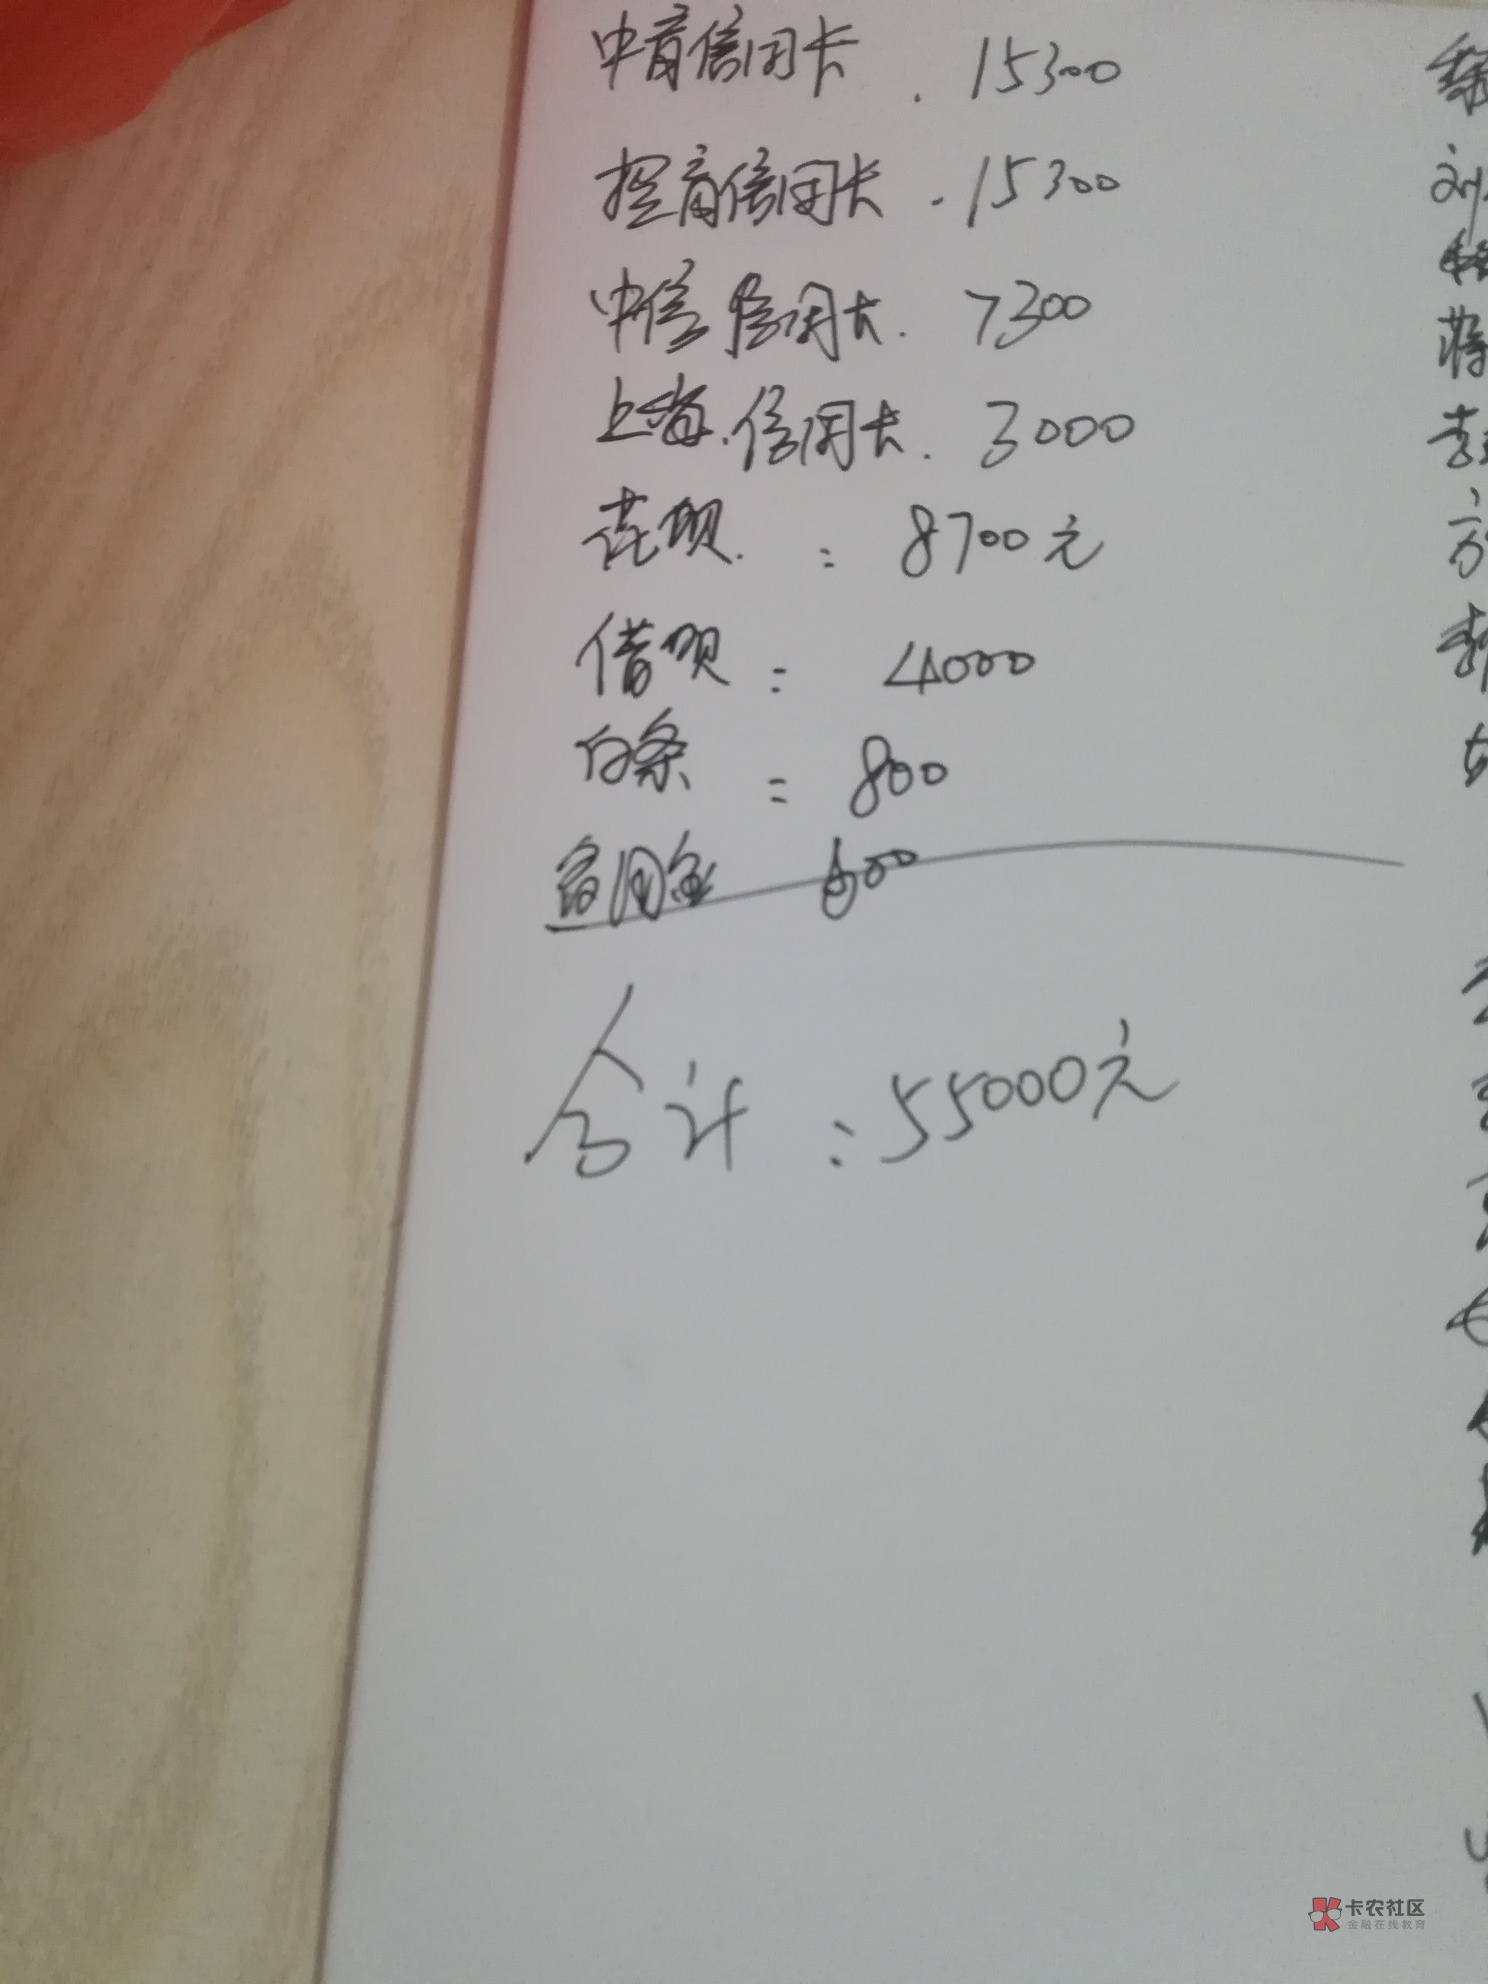 中商信用卡. 15300
招商信用卡. 15300
中信信用卡. 7300
上海.信用卡. 3000
花呗. : 8700元
借呗 : 4000
白条 : 800
备用金 600
合计:55000元
刘
蒋
李
方
卡农社区
金融在线教育